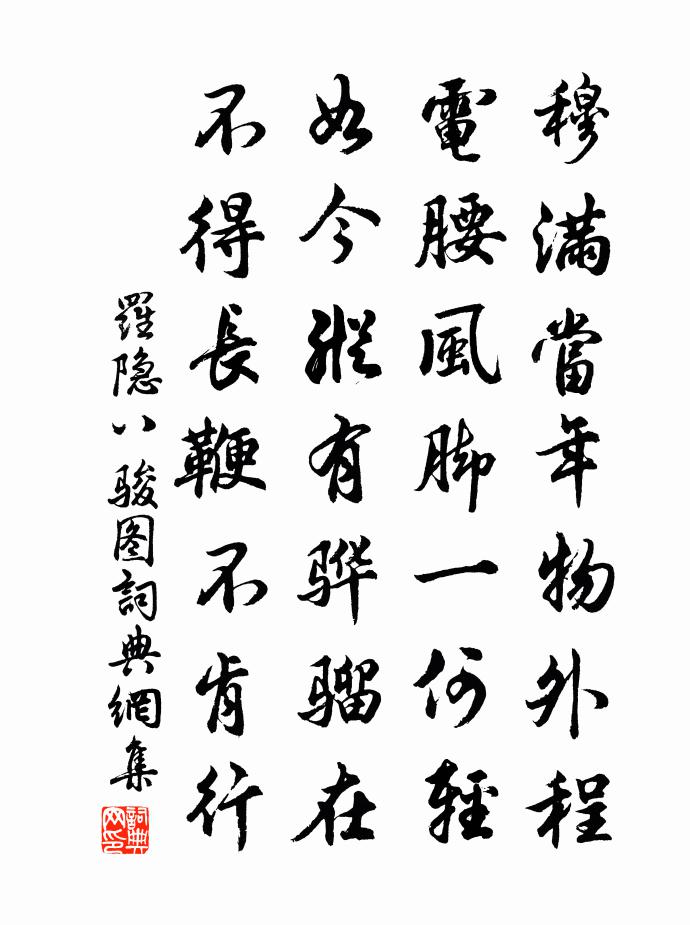 穆滿當年物外程
電腰風脚一何輕
如今縱有骅骝在
不得長鞭不肯行
羅隐八駿图詞典網集
詞典网印